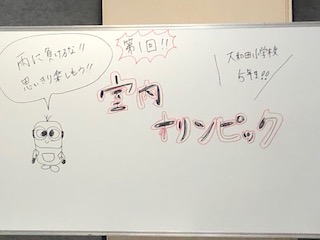 雨に負けるな!!
思いっきり楽しもう!!
第1回!!
大和田小学校
5年生!!
室内
オリンピック